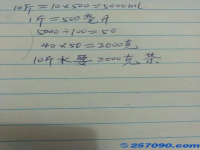 10斤=10×500=5000ml
1斤=500毫升
5000÷100=50
40×50=2000克
10斤水要2000克茶
257090.com